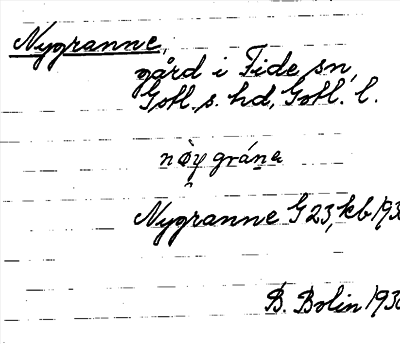 Nygranne,
gård i Fide sn,
Gotl. s. hd, Gotl. l.
nø̀y grána
Nygranne G 23, kb 193
B. Bolin 193